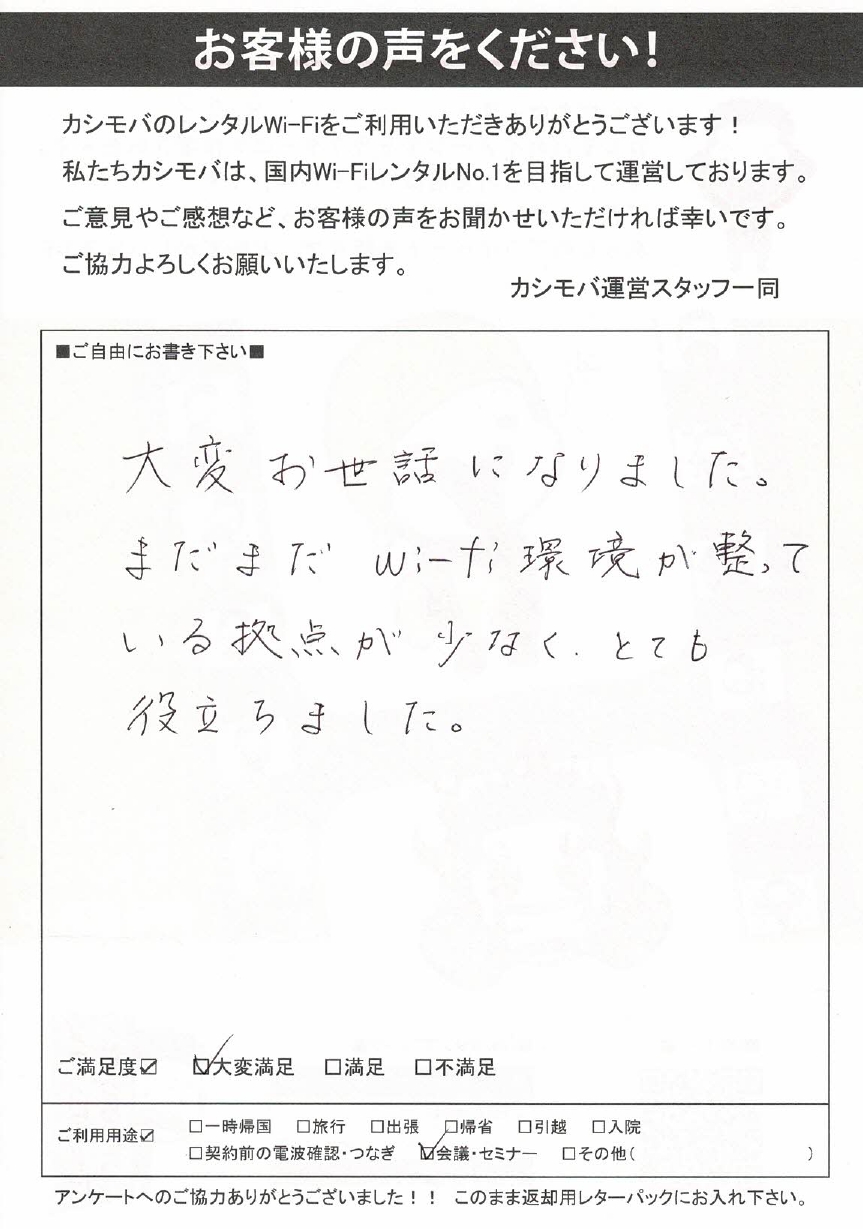 お客様の声をください!
カシモバのレンタルWi-Fiをご利用いただきありがとうございます！
私たちカシモバは、国内Wi-FiレンタルNo.1を目指して運営しております。
ご意見やご感想など、お客様の声をお聞かせいただければ幸いです。
ご協力よろしくお願いいたします。
カシモバ運営スタッフ一同
■ご自由にお書き下さい■
大変お世話になりました。
まだまだ wi-fi 環境が整って
いる拠点が少なく、とても
役立ちました。
ご満足度☑ ☑大変満足 □満足 □不満足
ご利用用途☑ □一時帰国 □旅行 □出張 □帰省 □引越 □入院
□契約前の電波確認・つなぎ ☑会議・セミナー □その他( )
アンケートへのご協力ありがとうございました！！ このまま返却用レターパックにお入れ下さい。